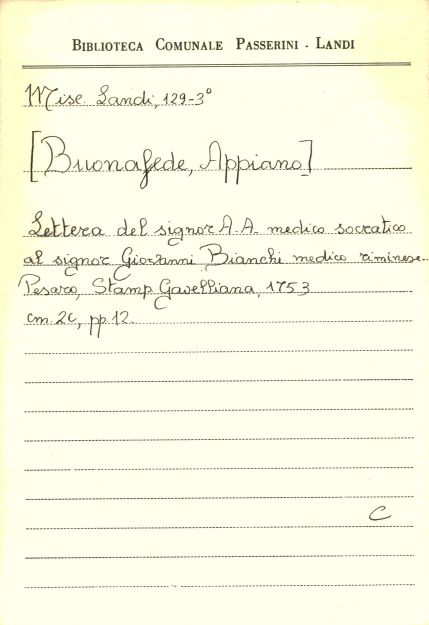 BIBLIOTECA COMUNALE PASSERINI - LANDI
Misc. Landi, 129-3°
[Buonafede, Appiano]
Lettera del signor A.A. medico socratico
al signor Giovanni Bianchi medico riminese.
Pesaro, Stamp. Gavelliana, 1753
cm. 20, pp. 12.
C